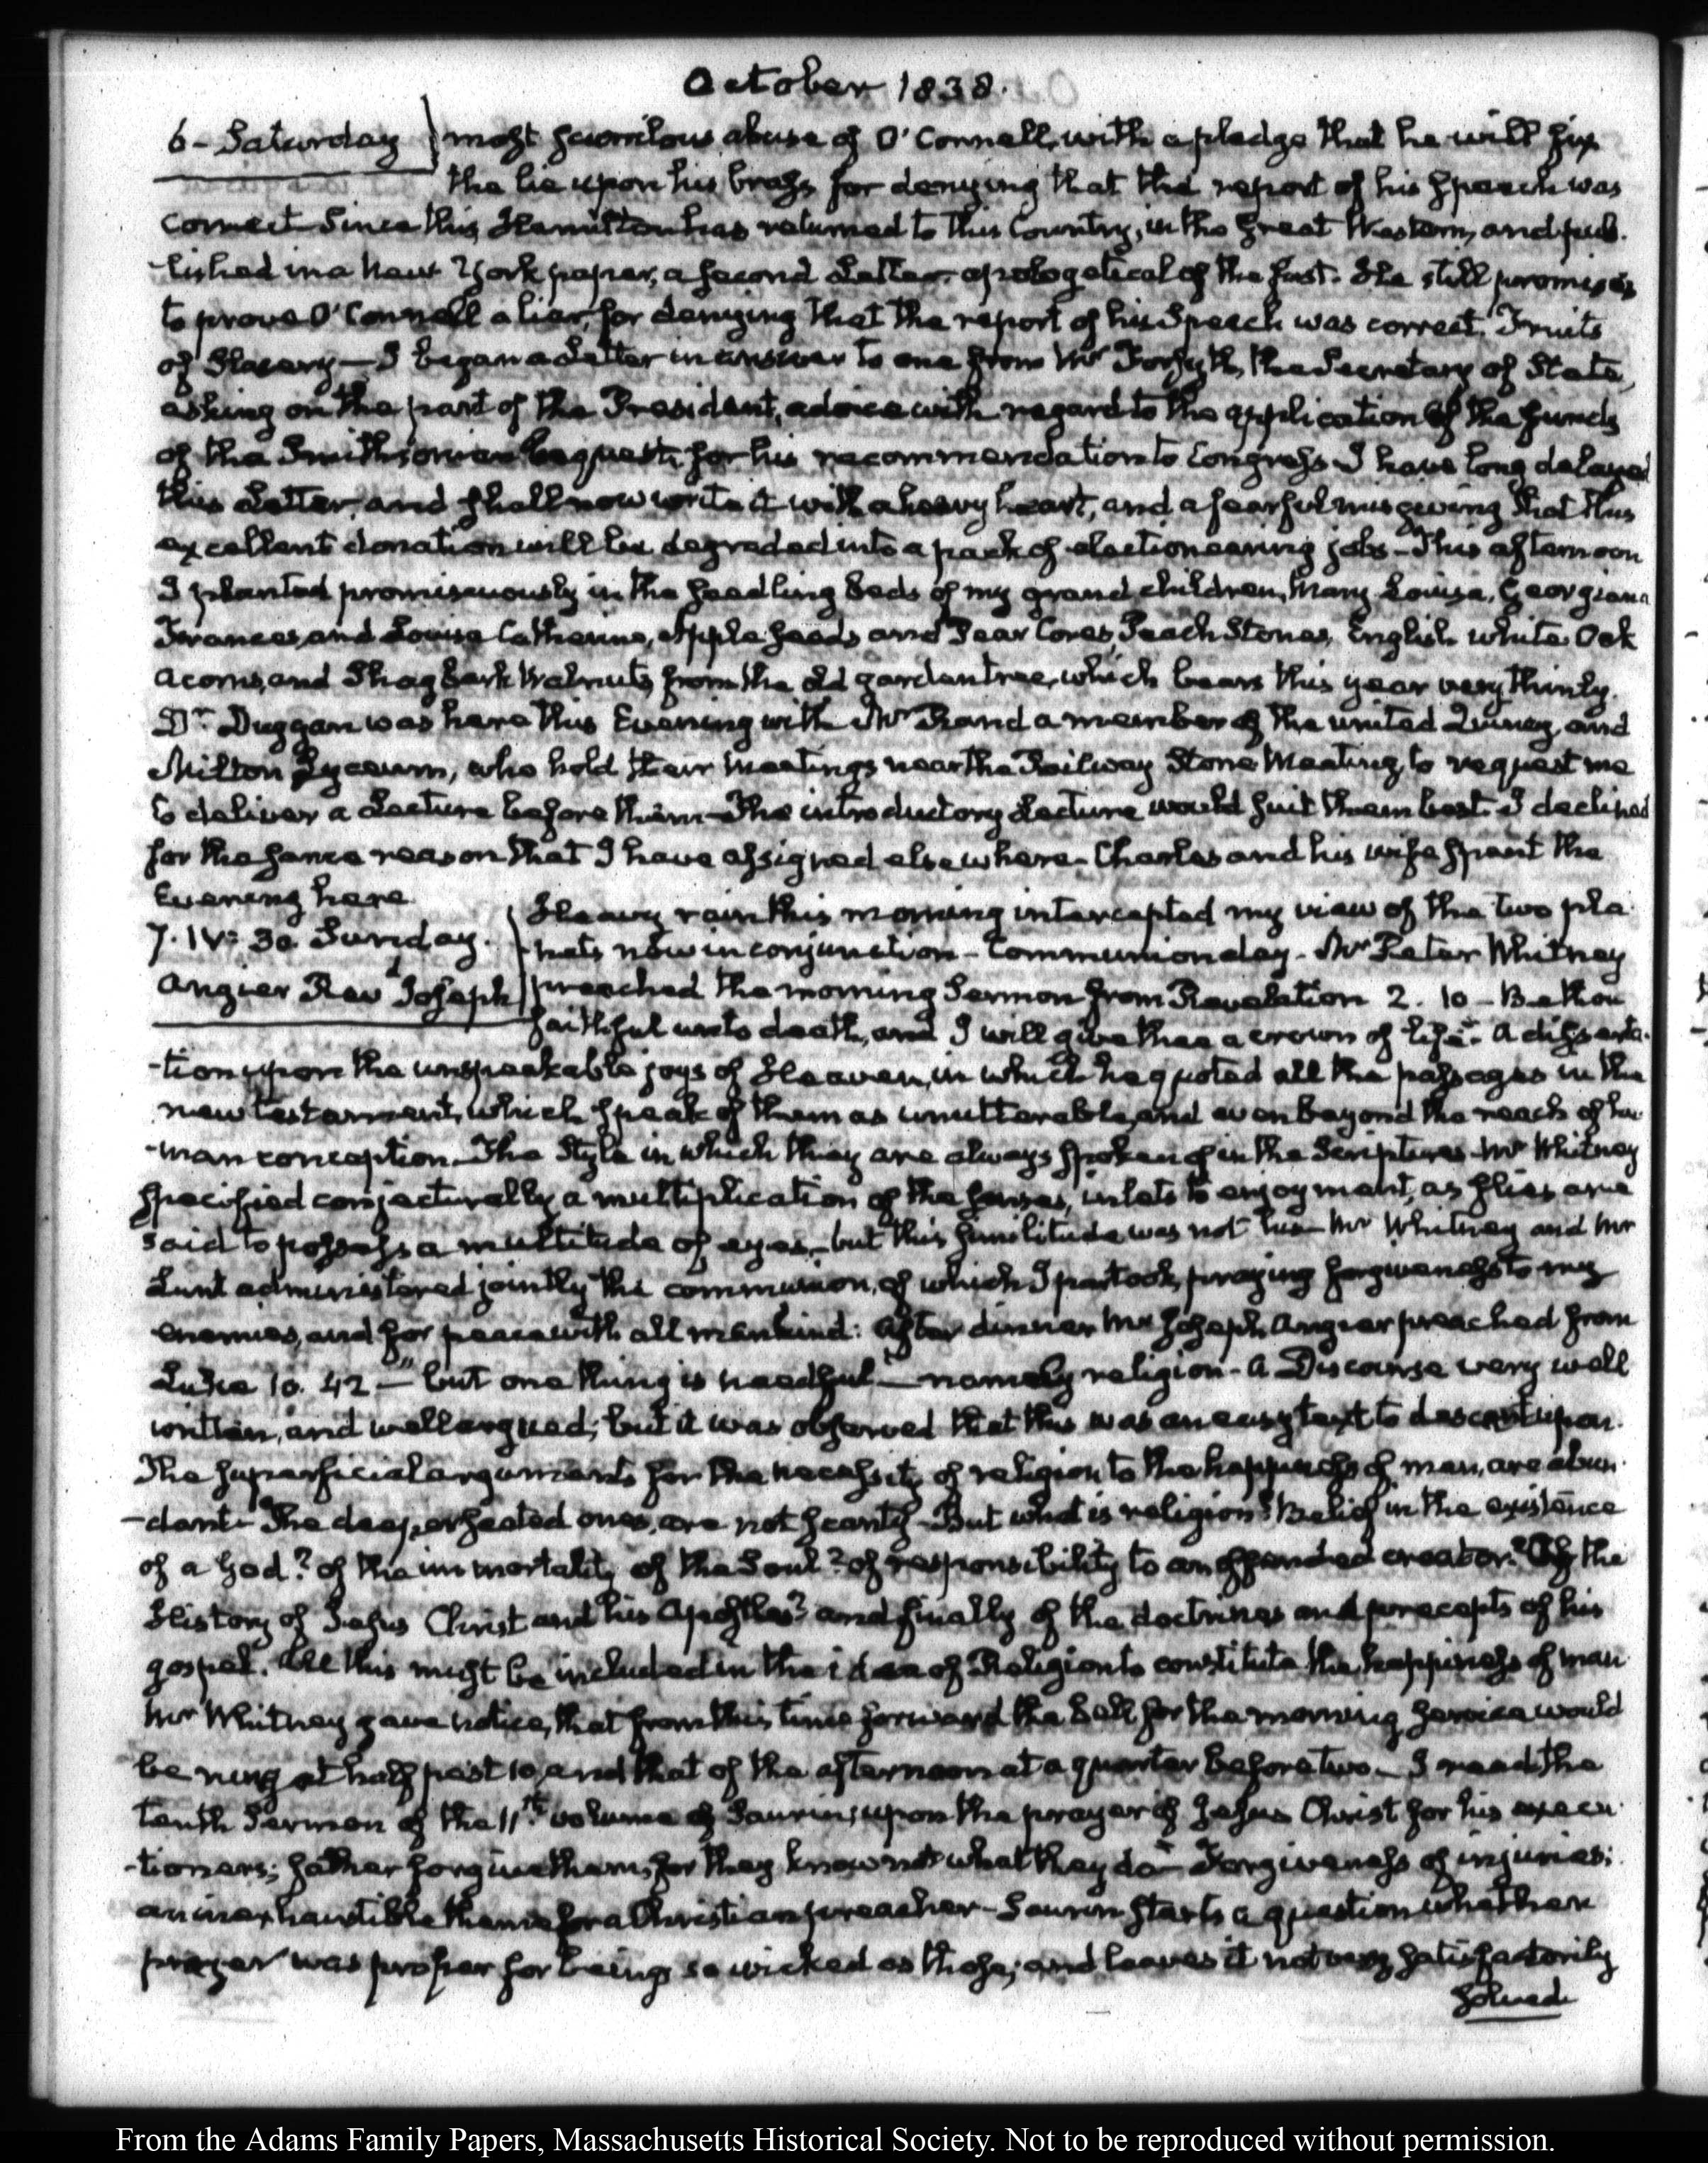 October 1838.
6 - Saturday
most scurrilous abuse of O'Connell, with a pledge that he will fix
the lie upon his brass for denying that the report of his speech was
correct. Since this, Hamilton has returned to this Country, in the Great Western, and pub-
-lished in a New York paper, a second Letter apologetical of the first. He still promises
to prove O'Connell a liar, for denying that the report of his Speech was correct. Fruits
of Slavery — I began a Letter in answer to one from Mr Forsyth, the Secretary of State,
asking on the part of the President, advice with regard to the application of the funds
of the Smithsonian bequest, for his recommendation to Congress. I have long delayed
this Letter, and shall now write it with a heavy heart, and a fearful misgiving that this
excellent donation will be degraded into a pack of electioneering jobs - This afternoon
I planted promiscuously in the seedling beds of my grand children, Mary Louisa, Georgiana
Frances, and Louisa Catherine, Apple seeds and Pear Cores, Peach Stones, English white Oak
acorns, and Shagbark Walnuts, from the old garden tree, which bears this year very thinly.
Dr Duggan was here this Evening with Mr Rand a member of the united Quincy, and
Milton Lyceum, who hold their meetings near the Railway Stone Meeting, to request me
to deliver a Lecture before them - The introductory Lecture would suit them best. I declined
for the same reason that I have assigned elsewhere - Charles and his wife spent the
Evening here
7. IV: 30 Sunday.
Angier Revd Joseph
Heavy rain this morning intercepted my view of the two pla-
-nets now in conjunction - Communion day - Mr Peter Whitney
preached the morning Sermon from Revelation 2. 10 - Be thou
faithful unto death, and I will give thee a crown of life." A disserta-
-tion upon the unspeakable joys of Heaven, in which he quoted all the passages in the
new testament, which speak of them as unutterable, and even beyond the reach of hu-
-man conception. The Style in which they are always spoken of in the Scriptures. Mr Whitney
specified conjecturally a multiplication of the senses, inlets to enjoyment, as flies are
said to possess a multitude of eyes - but this similitude was not his - Mr Whitney and Mr
Lunt administered jointly the communion, of which I partook, praying forgiveness to my
enemies, and for peace with all mankind: After dinner Mr Joseph Angier preached from
Luke 10. 42 - "but one thing is needful" - namely religion - A Discourse very well
written, and well argued; but it was observed that this was an easy text to descant upon.
The superficial arguments for the necessity of religion to the happiness of man, are abun-
-dant - The deep seated ones, are not scanty - But what is religion? Belief in the existence
of a God? of the immortality of the Soul? of responsibility to an offended creator? Of the
History of Jesus Christ and his Apostles? and finally of the doctrines and precepts of his
gospel. All this must be included in the idea of Religion to constitute the happiness of man
Mr Whitney gave notice, that from this time forward the bell for the morning service would
be rung at half past 10, and that of the afternoon at a quarter before two - I read the
tenth Sermon of the 11th volume of Saurin, upon the prayer of Jesus Christ for his execu-
-tioners; father forgive them, for they know not what they do - Forgiveness of injuries;
an inexhaustible theme for a Christian preacher - Saurin starts a question whether
prayer was proper for beings so wicked as those; and leaves it not very satisfactorily
solved.
From the Adams Family Papers, Massachusetts Historical Society. Not to be reproduced without permission.